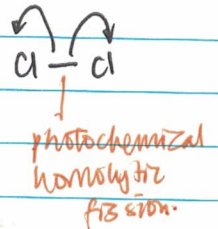 Cl — Cl
photochemical
homolytic
fission.